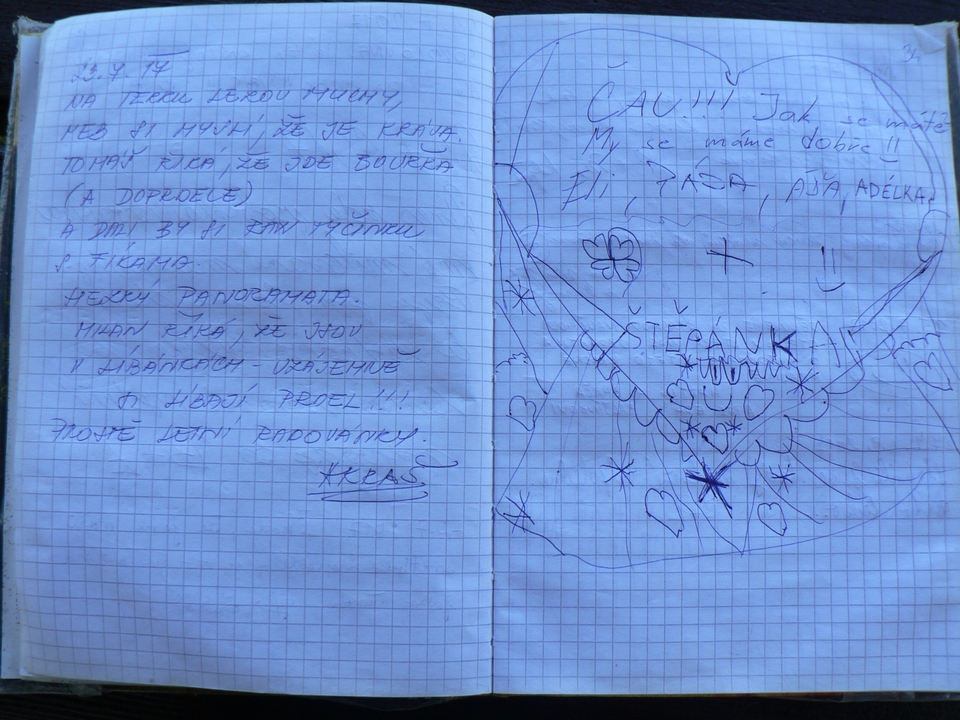 23.7.17
NA TERKU LEZOU MUCHY,
NEB SI MYSLÍ, ŽE JE KRÁVA.
TOMÁŠ ŘÍKÁ, ŽE JDE BOUŘKA
(A DOPRDELE)
A DAL BY SI RÁD TYČINKU
S FÍKAMA.
HEZKÝ PANORAMATA.
MILAN ŘÍKÁ, ŽE JSOU
V LÍBÁNKÁCH - VZÁJEMNĚ
SI LÍBAJÍ PRDEL!!!
PROSTĚ LETNÍ RADOVÁNKY.
ČAU!!! Jak se máte
My se máme dobře!!
Eli, ZÁZA, AJŠA, ADÉLKA
+
ŠTĚPÁNKA